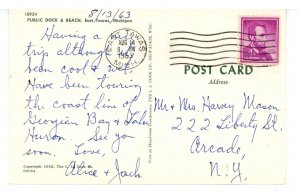 1292V
PUBLIC DOCK & BEACH, East Tawas, Michigan
8/13/63
Having a
trip altho
been cool &
Have been touring
the coast line of
Georgian Bay & Lake
Huron. See you
soon. Love,
Alice & Jack
TAWAS
AUG 14
1963
MICH
POST CARD
Address
Mr & Mrs. Harvey Mason
222 Liberty St.
Arcade,
N.Y.